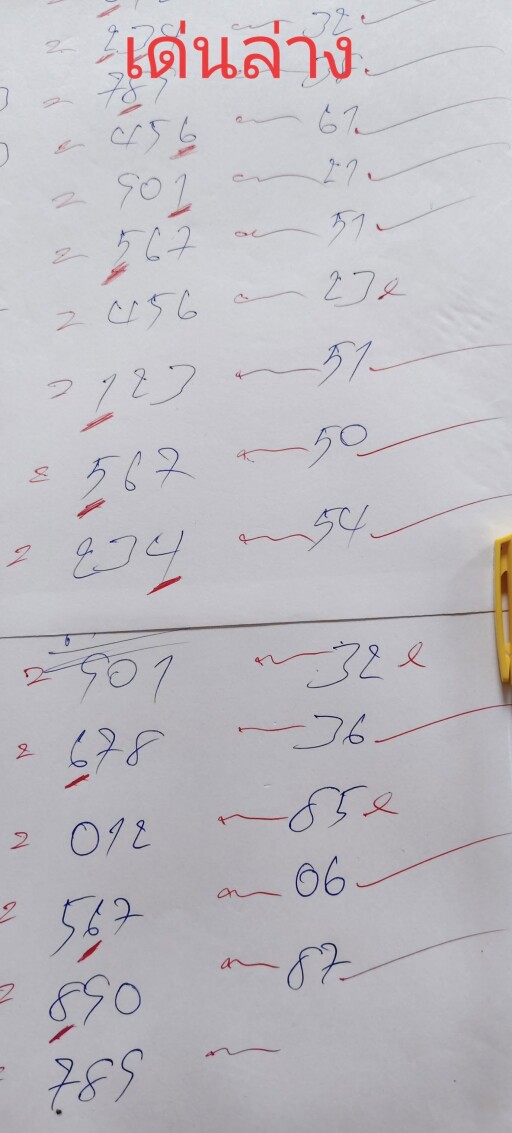 เด่นล่าง
234 32
789
456 61
901 21
567 51
456 23
123 51
567 50
234 54
901 32
678 36
012 85
567 06
890 87
789